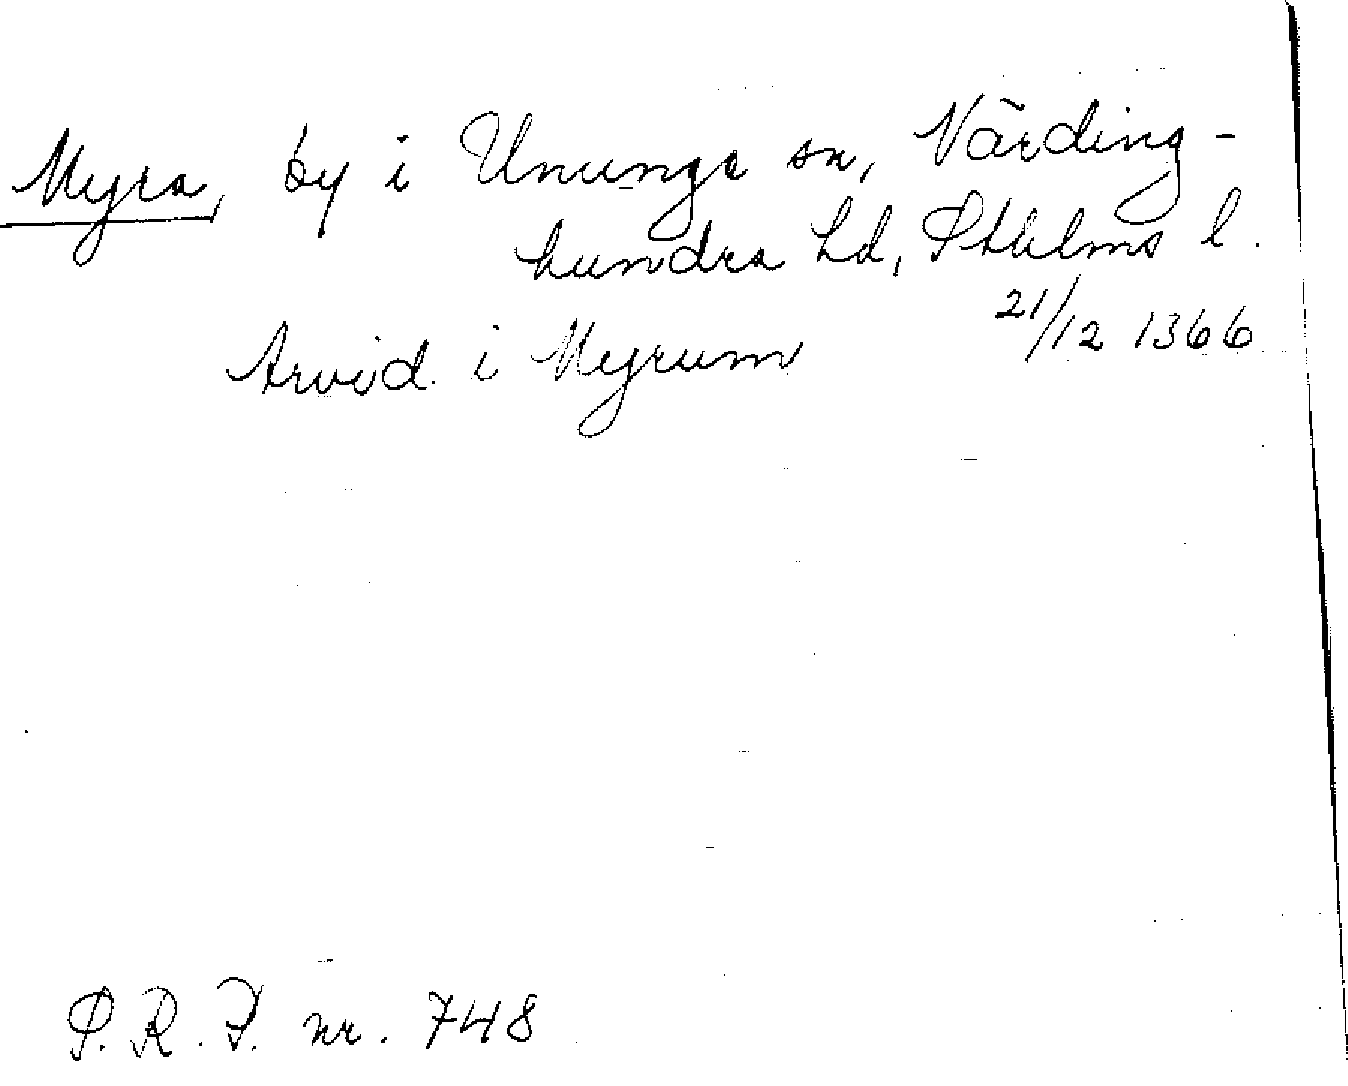 Myra, by i Ununge sn, Närding-
hundra hd, Sthlms l.
21/12 1366
Arvid i Myrum
S.R.P. nr. 748